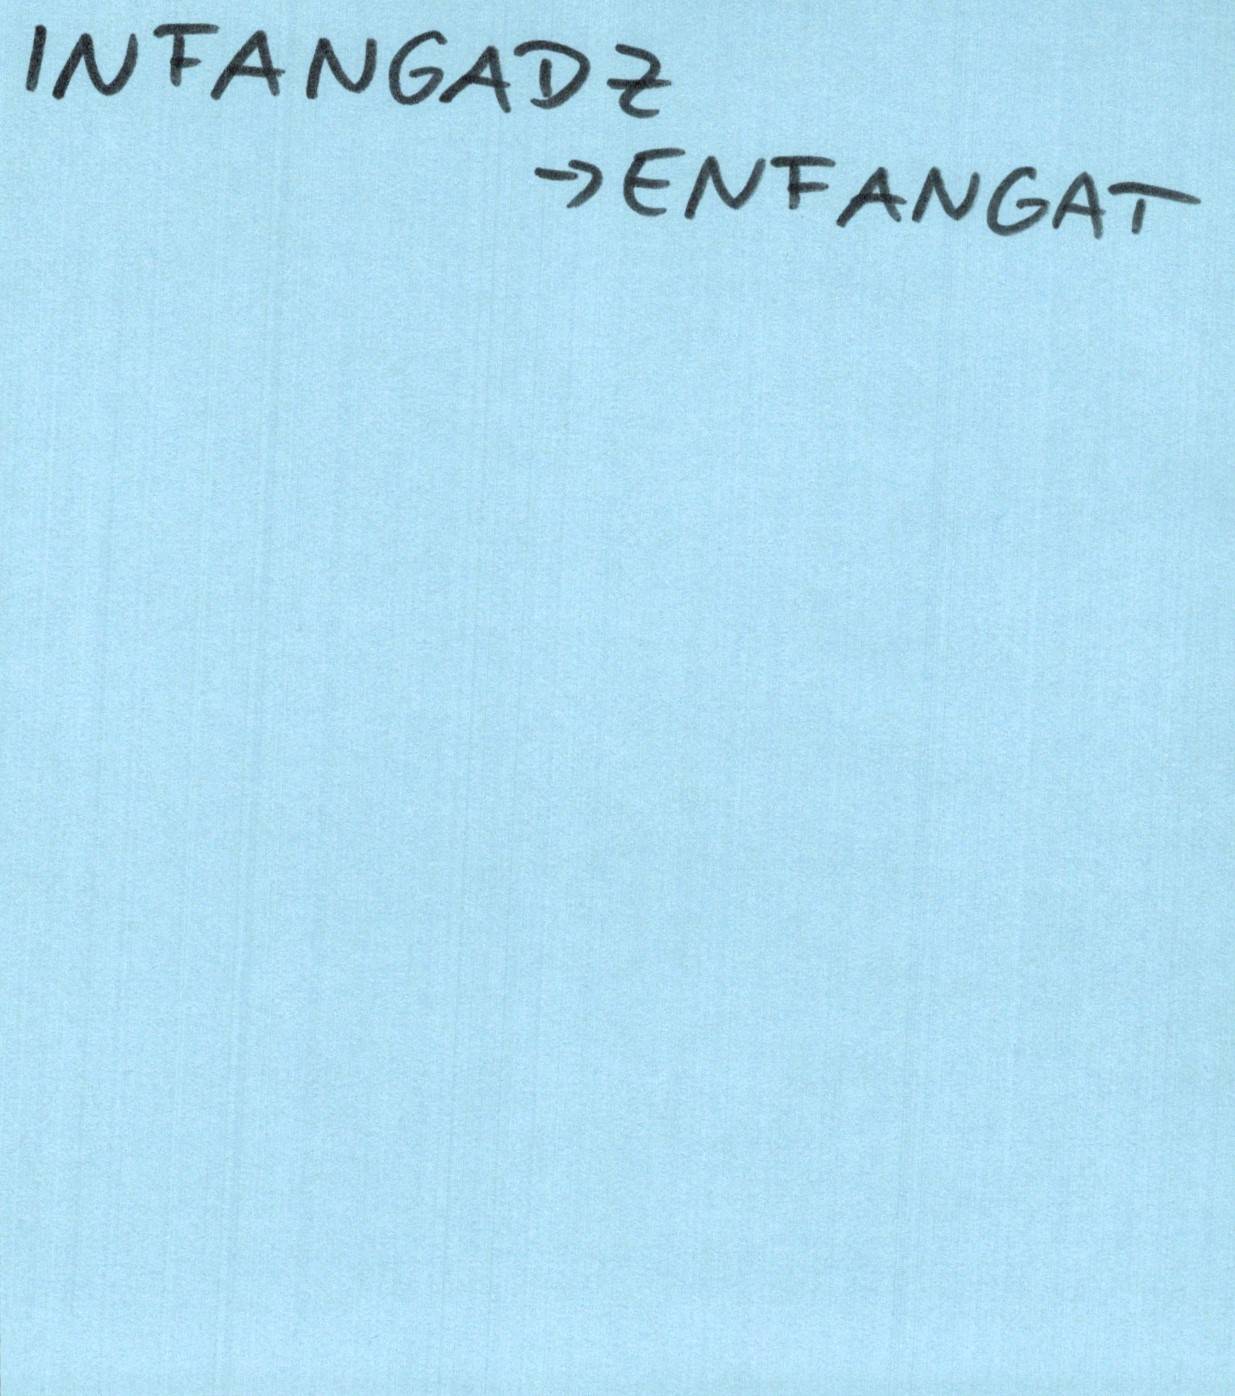 INFANGADZ
→ENFANGAT